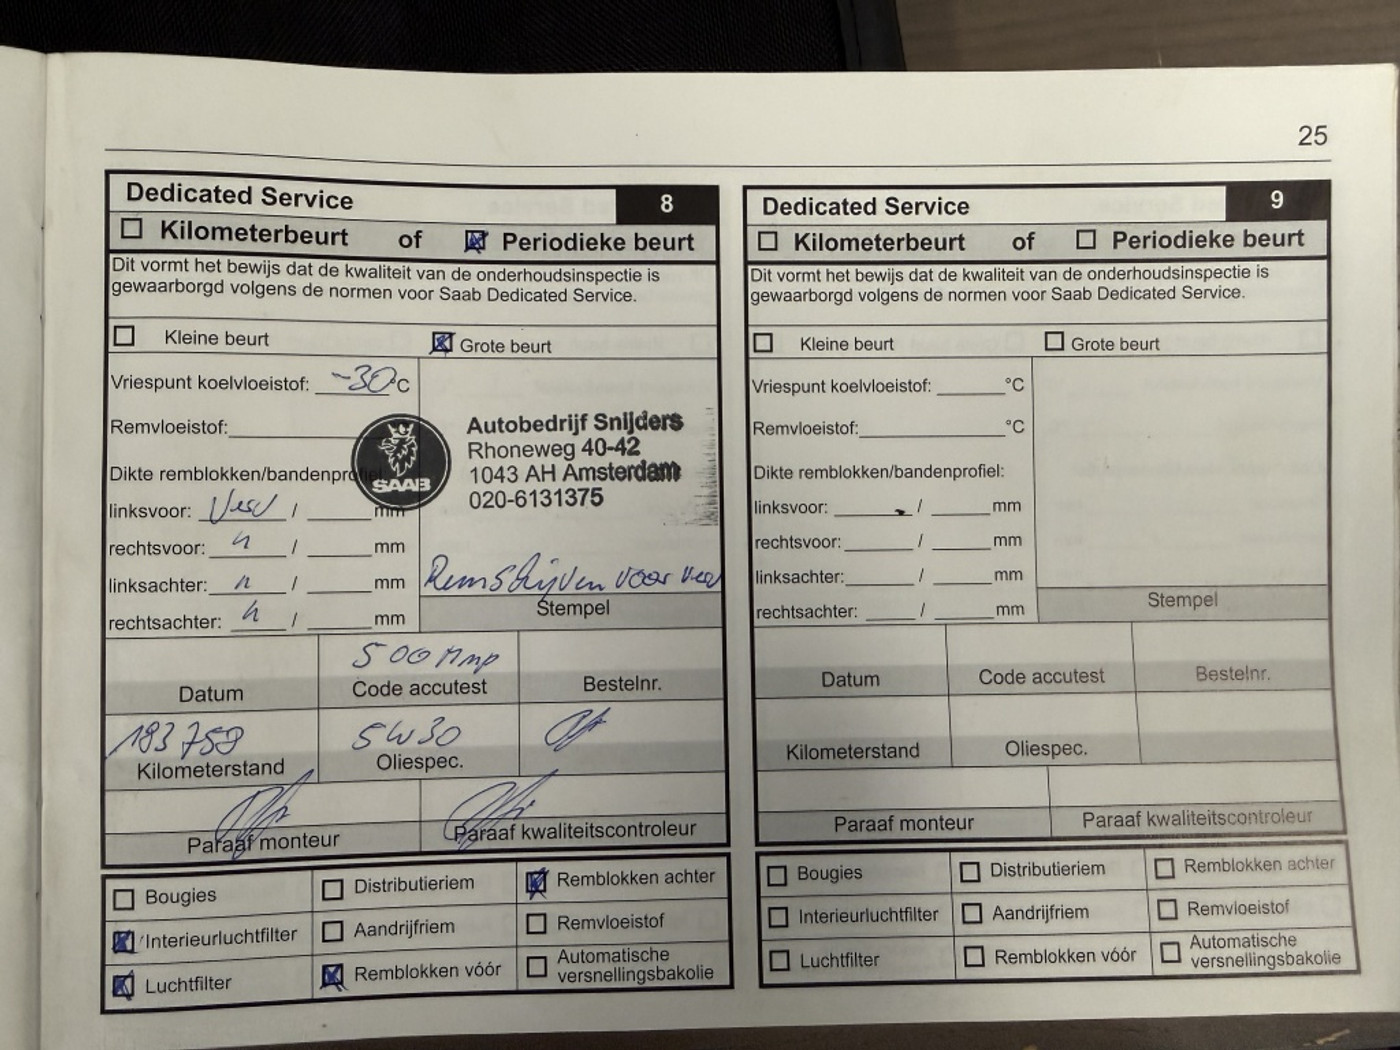 25
Dedicated Service 8
Kilometerbeurt of Periodieke beurt
Dit vormt het bewijs dat de kwaliteit van de onderhoudsinspectie is
gewaarborgd volgens de normen voor Saab Dedicated Service.
Kleine beurt Grote beurt
Vriespunt koelvloeistof: -30°C
Remvloeistof:
Dikte remblokken/bandenprofiel
SAAB
Autobedrijf Snijders
Rhoneweg 40-42
1043 AH Amsterdam
020-6131375
linksvoor: / mm
rechtsvoor: " / mm
linksachter: " / mm
rechtsachter: " / mm
Remschijven voor
Stempel
500 Amp
Datum Code accutest Bestelnr.
193758 5W30
Kilometerstand Oliespec.
Paraaf monteur Paraaf kwaliteitscontroleur
Bougies Distributieriem Remblokken achter
Interieurluchtfilter Aandrijfriem Remvloeistof
Luchtfilter Remblokken vóór Automatische
versnellingsbakolie
Dedicated Service 9
Kilometerbeurt of Periodieke beurt
Dit vormt het bewijs dat de kwaliteit van de onderhoudsinspectie is
gewaarborgd volgens de normen voor Saab Dedicated Service.
Kleine beurt Grote beurt
Vriespunt koelvloeistof: °C
Remvloeistof: °C
Dikte remblokken/bandenprofiel:
linksvoor: / mm
rechtsvoor: / mm
linksachter: / mm
rechtsachter: / mm
Stempel
Datum Code accutest Bestelnr.
Kilometerstand Oliespec.
Paraaf monteur Paraaf kwaliteitscontroleur
Bougies Distributieriem Remblokken achter
Interieurluchtfilter Aandrijfriem Remvloeistof
Luchtfilter Remblokken vóór Automatische
versnellingsbakolie